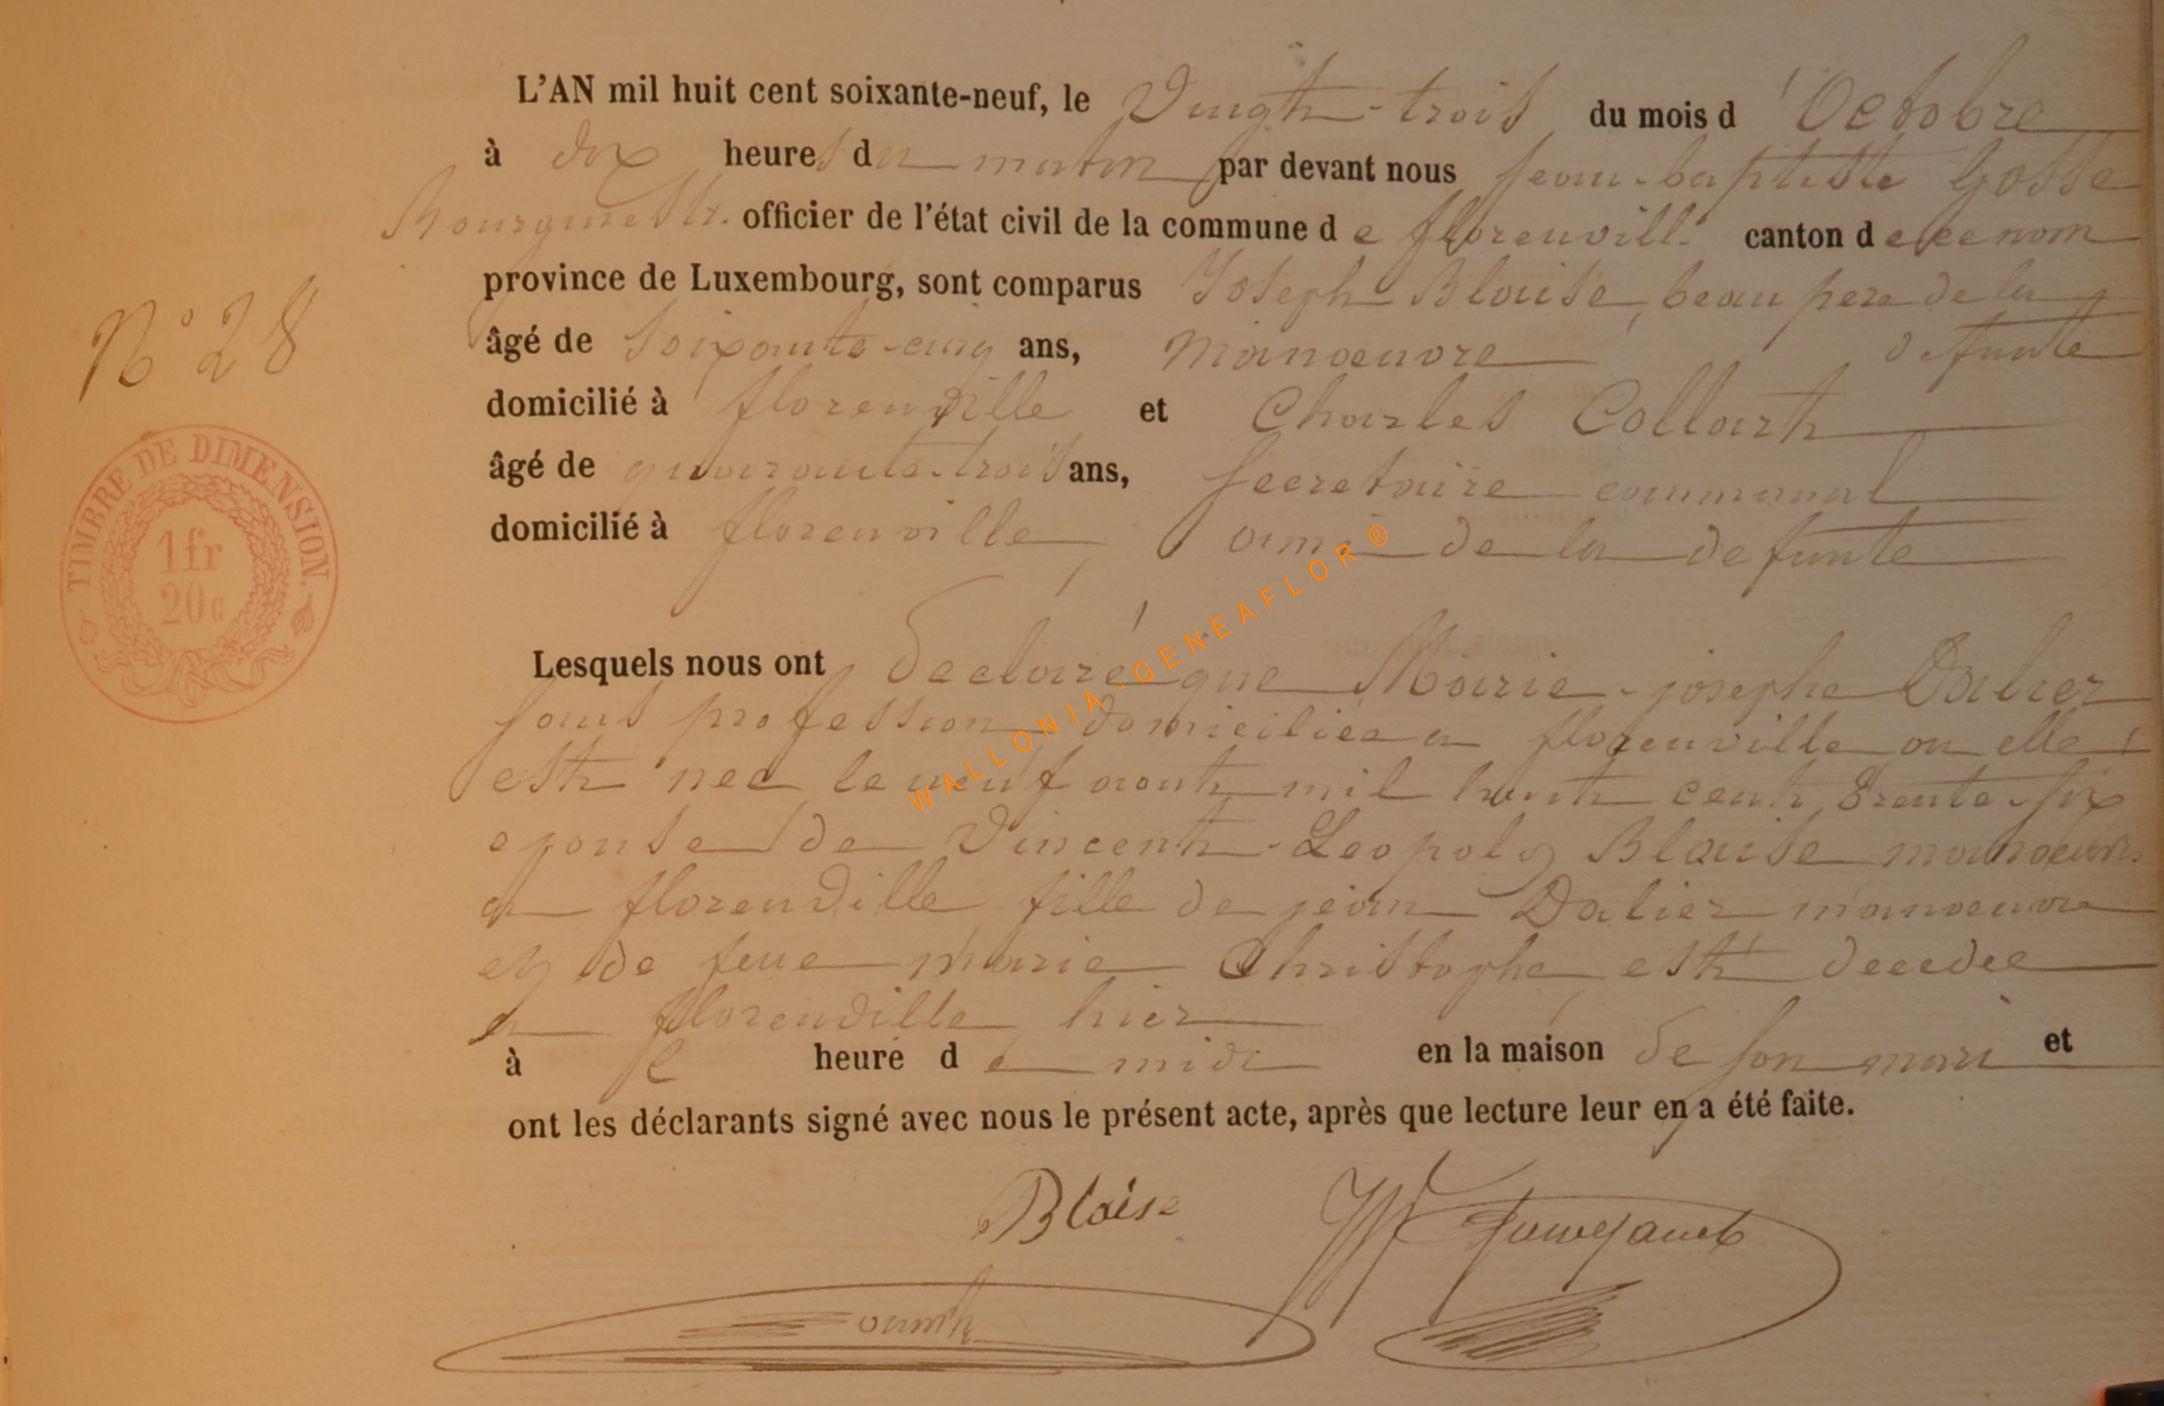 L'AN mil huit cent soixante-neuf, le Vingt-trois du mois d'Octobre
à dix heures du matin par devant nous Jean-baptiste Gosse
Bourgmestr. officier de l'état civil de la commune de florenvill. canton de ce nom
province de Luxembourg, sont comparus Joseph Blaise, beau pere de la
âgé de soixante-cinq ans, manoeuvre defunte
N° 28
domicilié à florenville et Charles Collart
âgé de quarante-trois ans, secretaire communal
domicilié à florenville, ami de la defunte
TIMBRE DE DIMENSION.
1fr
20c
Lesquels nous ont declaré que Marie-josephe Dalier
sans profession domiciliée a florenville ou elle
est nee le neuf aout mil huit cent trente-six
epouse de Vincent-Leopold Blaise manoeuvre
a florenville fille de jean Dalier manoeuvre
et de feue marie Christophe est decedee
a florenville hier
à l heure de midi en la maison de son mari et
ont les déclarants signé avec nous le présent acte, après que lecture leur en a été faite.
Blaise
WALLONIA-GENEAFLOR ®